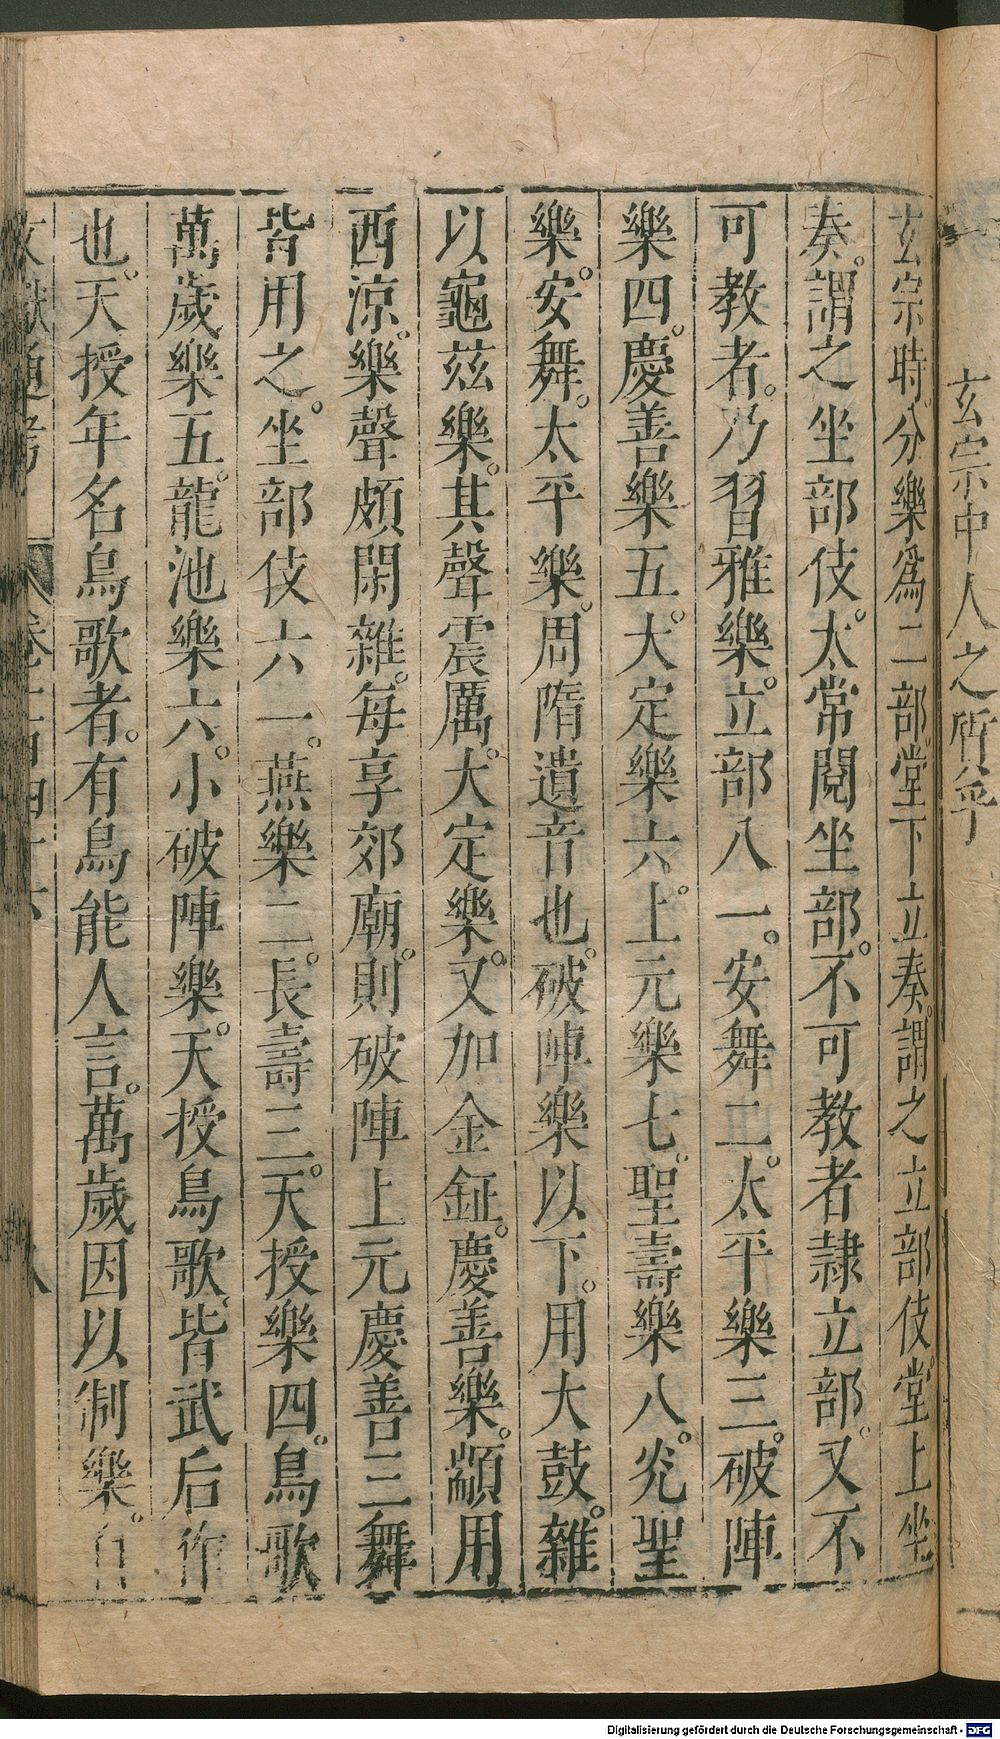 玄宗中人之質乎
玄宗時。分樂爲二部。堂下立奏。謂之立部伎。堂上坐
奏。謂之坐部伎。太常閱坐部。不可教者隷立部。又不
可教者。乃習雅樂。立部八一。安舞二。太平樂三。破陣
樂四。慶善樂五。大定樂六。上元樂七。聖壽樂八。光聖
樂。安舞。太平樂。周隋遺音也。破陣樂以下。用大鼓。雜
以龜兹樂。其聲震厲。大定樂。又加金鉦。慶善樂。顓用
西涼。樂聲頗閑雜。每享郊廟。則破陣上元慶善三舞
皆用之。坐部伎六一。燕樂二。長壽三。天授樂四。鳥歌
萬歲樂五。龍池樂六。小破陣樂。天授鳥歌。皆武后作
也。天授年名鳥歌者。有鳥能人言。萬歲因以制樂。自
文獻通考 卷一百四十六 八
Digitalisierung gefördert durch die Deutsche Forschungsgemeinschaft - DFG